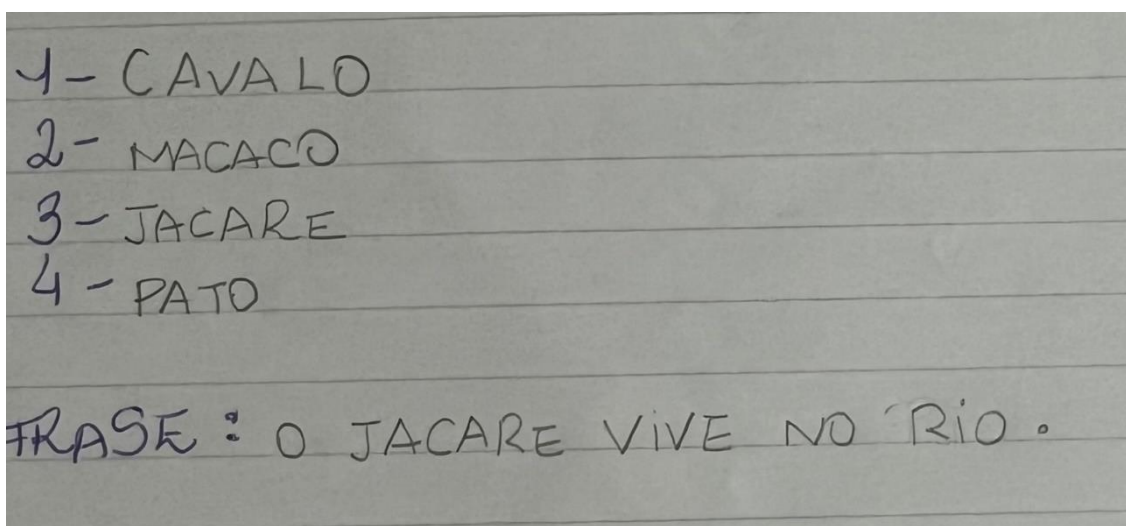 1- CAVALO
2- MACACO
3- JACARE
4- PATO
FRASE: O JACARE ViVE NO RiO.